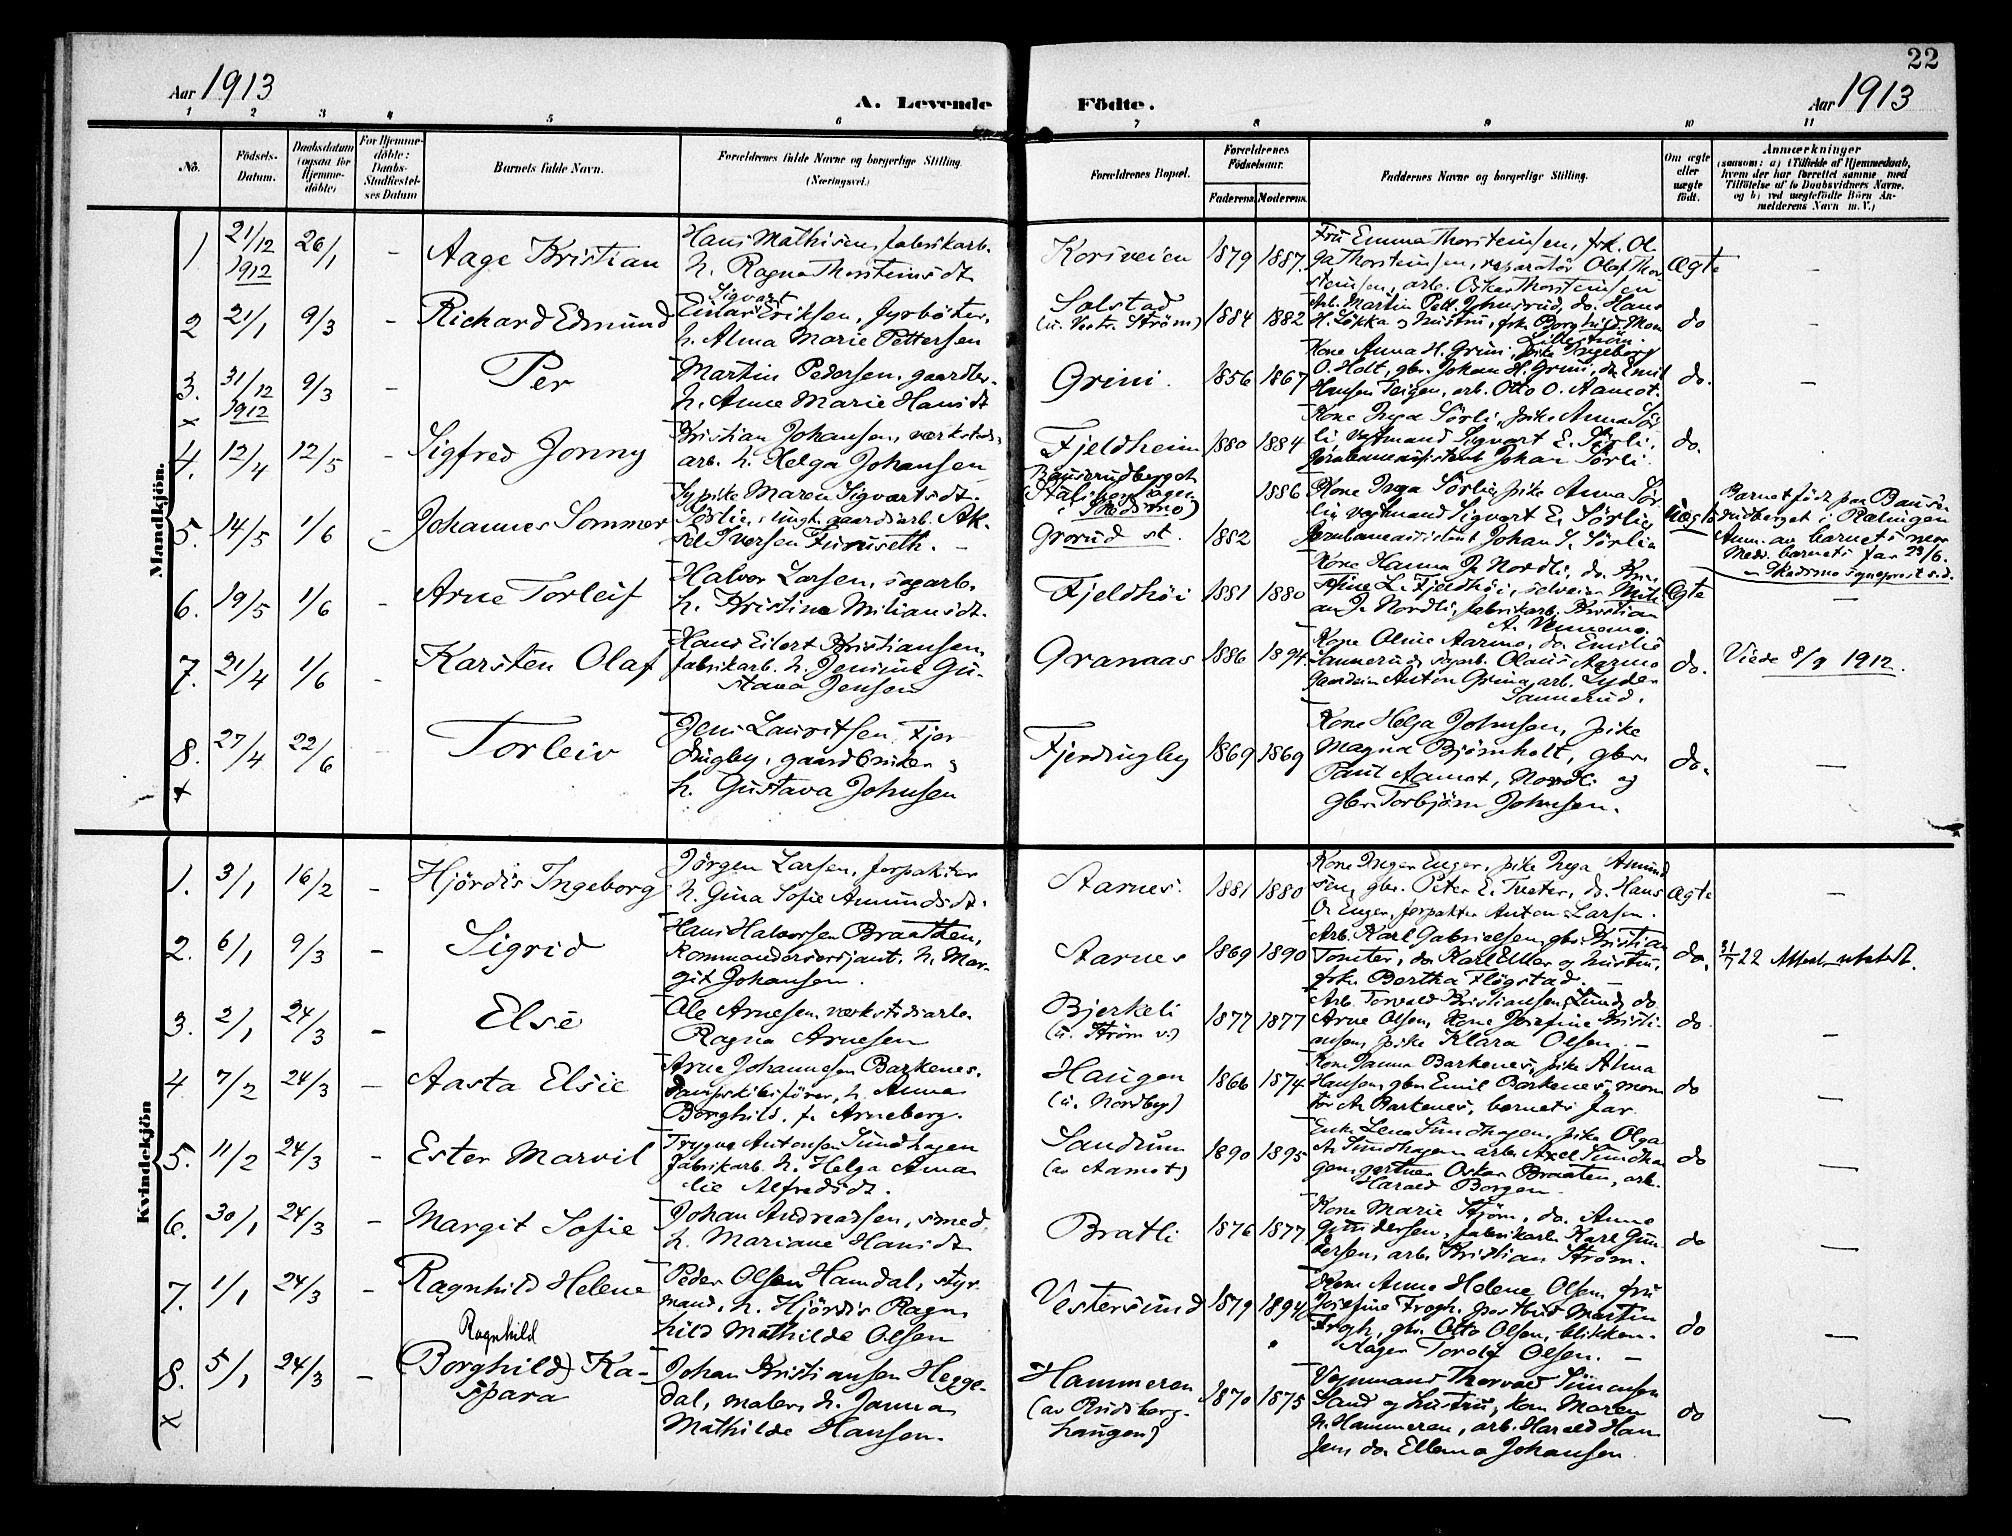 22
Aar 1913
A. Levende
Födte.
Aar 1913
1 2 3 4 5 6 7 8 9 10 11
No.
Födsels-
Datum.
Daabsdatum
(ogsaa for
Hjemme-
döbte)
For Hjemme-
döbte:
Daabs-
Stadfæstel-
ses Datum
Barnets fulde Navn.
Forældrenes fulde Navne og borgerlige Stilling.
(Næringsvei.)
Forældrenes Bopæl.
Forældrenes
Födselsaar.
Faderens. Moderens.
Faddernes Navne og borgerlige Stilling.
Om ægte
eller
uægte
födt.
Anmærkninger
(saasom: a) i Tilfælde af Hjemmedaab,
hvem der har forrettet samme med
Tilföielse af to Daabsvidners Navne,
og b) ved uægtefödte Börn An-
melderens Navn m. V.)
Mandkjön.
1 21/12 1912 26/1 -
Aage Kristian
Hans Mathisen, fabrikarb.
h. Ragna Thorsteinsdt
Korsveien
1879 1887
Fru Emma Thorsteinsen, frk. Ol-
ga Thorsteinsen, reparatør Olaf Thor-
steinsen, arb. Oskar Thorsteinsen
Ægte
-
2 21/1 9/3 -
Richard Edmund
Sigvart
Einar Eriksen, fyrbøter,
h. Alma Marie Pettersen
Solstad
(u. Vestr. Strøm)
1884 1882
Arb. Martin Pett. Johnsrud, do. Hans
H. Løkka og hustru, frk. Borghild Mon
Lillestrøm.
do
3. x 31/12 1912 9/3 -
Per
Martin Pedersen, gaardbr.
h. Anne Marie Hansdt
Grini.
1856 1867
Kone Anna H. Grini, pike Ingeborg
O. Holt, gbr. Johan H. Grini, do Emil
Hansen Teigen, arb. Otto O. Aamot.
do.
-
4. 12/4 12/5 -
Sigfred Jonny
Kristian Johansen, værksteds-
arb. h. Helga Johansen
Fjeldheim
1880 1884
Kone Inga Sørli, pike Anna Sør-
li, vogtmand Sigvart E. Sørli,
Jernbaneassistent Johan Sørli.
do.
5. 14/5 1/6 -
Johannes Sommer
Sypike Maren Sigvartsdt.
Sørlie, ungk. gaardsarb. Ak-
sel Iversen Furuseth. -
i Skedsmo)
Grorud st.
1886
1882
Kone Inga Sørlie, pike Anna Sør-
lie, vogtmand Sigvart E. Sørlie
Jernbaneassistent Johan S. Sørlie
Uægte
Anm. av barnets mor
Med. barnets far 29/6.
6. 19/5 1/6
Arne Torleif
Halvor Larsen, sagarb.
h. Kristine Miliansdt.
Fjeldhöi
1881 1880
Kone Hanna J. Nordli, do. Kris-
tine L. Fjeldhöi, selveier Mili-
an J. Nordli, fabrikarb. Kristian
A. Vennemo.
Ægte
-
7. 21/4 1/6 -
Karsten Olaf
Hans Eilert Kristiansen,
fabrikarb. h. Jensine Gu-
stava Jensen
Granaas
1886 1894
Kone Oline Aarmo, do. Emilie
Sannerud, sagarb. Olaus Aarmo
Anton Grina, arb. Lyder
Sannerud.
do.
Viede 8/9 1912.
8. x 27/4 22/6
Torleiv
Jens Lauritsen, Fjer-
dingby, gaardbruker &
h. Gustava Johnsen
Fjerdingby
1869 1869
Kone Helga Johnsen, pike
Magna Bjørnholt, gbr.
Paul Aamot, Nordli og
gbr. Torbjørn Johnsen.
do.
-
Kvindekjön
1. 3/1 16/2 -
Hjördis Ingeborg
Jørgen Larsen, forpakter
h. Gina Sofie Amundsdt.
Aarnes.
1881 1880
Kone Inger Enger, pike Inga Amund-
sen, gbr. Peter E. Tveter, do. Hans
O. Enger, forpakter Anton Larsen.
Ægte
-
2. 6/1 9/3 -
Sigrid
Hans Halvorsen Braathen,
Kommandersersjant. h. Mar-
git Johansen.
Aarnes
1869 1890
Arb. Karl Gabrielsen, gbr. Kristian
Tomter, do. Karl Eller og hustru,
frk. Bertha Fløgstad.
do.
31/7 22 Attest utstedt.
3. 2/1 24/3 -
Else
Ole Arnesen værkstedsarb.
Ragna Arnesen
Bjerkeli
(u. Strøm v.)
1877 1877
Arb. Torvald Kristiansen Lund, do
Arne Olsen, Kone Josefine Kristi-
ansen, pike Klara Olsen. -
do
-
4 7/2 24/3 -
Aasta Elsie
Arne Johannesen Barkenes,
Dampskibsfører, h. Anna
Borghild, f. Arneberg.
Haugen
(u. Nordby)
1866 1874
Kone Janna Barkenes, pike Alma
Hansen, gbr. Emil Barkenes, mon-
tør A. Barkenes, barnets far.
do
-
5. 11/2 24/3 -
Ester Marvil
Trygve Antonsen Sundhagen
fabrikarb. h. Helga Ama-
lie Alfredsdt.
Sandrum
(av Aamot)
1890 1895
Enke Lena Sundhagen, pike Olga
A. Sundhagen arb. Axel Sundha-
gen, gartner Oskar Braaten, arb.
Harald Borgen.
do
-
6. 30/1 24/3 -
Margit Sofie
Johan Andreassen, smed
h. Mariane Hansdt
Bratli
1876 1877
Kone Marie Strøm, do. Anne
Gundersen, fabrikarb. Karl Gun-
dersen, arb. Kristian Strøm.
do
-
7. 1/1 24/3 -
Ragnhild Helene
Peder Olsen Hamdal, styr-
mand, h. Hjördis Ragn-
hild Mathilde Olsen
Vestersund
1879 1894
Kone Anne Helene Olsen, fru
Josefine Frogh, postbud Martin
Frogh, gbr. Otto Olsen, blikken-
slager Torolf Olsen. -
do
-
8. x 5/1 24/3 -
Ragnhild
(Borghild) Ka-
spara
Johan Kristiansen Hegge-
dal, maler, h. Janna
Mathilde Hansen.
Hammeren
(av Rudsberg-
haugen)
1870 1875
Vognmand Thorvald Simensen
Sand og hustru, kone Maren
H. Hammeren, arb. Harald Han-
sen, do. Ellema Johansen
do
-